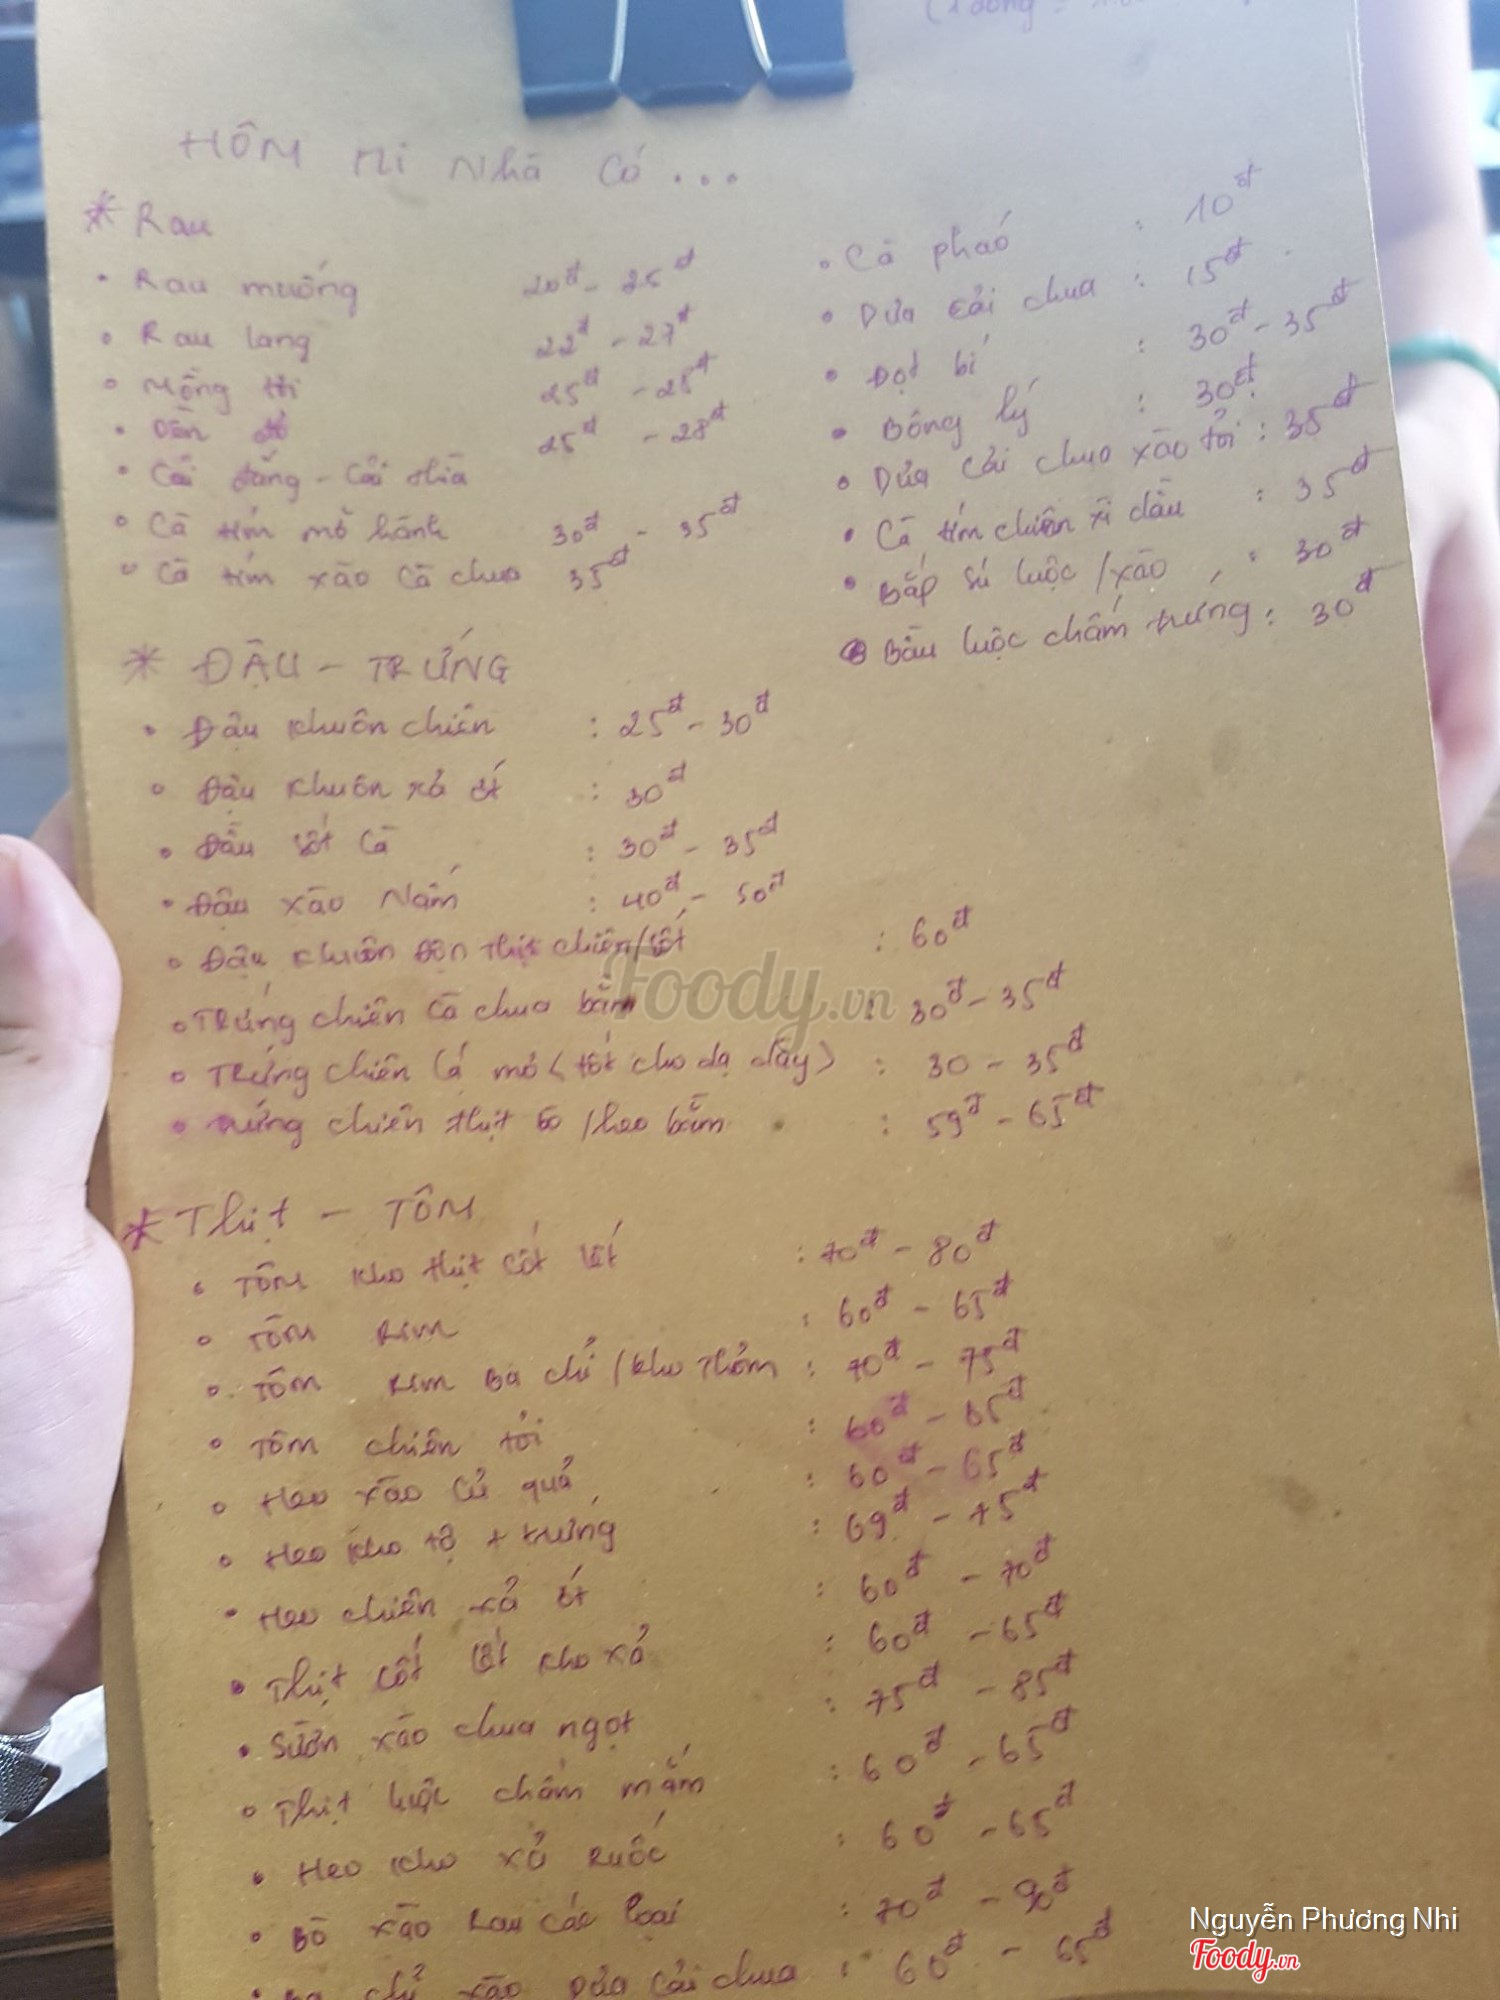 (1 đồng =
HÔM Ni Nhà Có...
* Rau
• Rau muống 20đ - 25đ
• Rau lang 22đ - 27đ
• Mồng tơi 25đ - 25đ
• Dền đỏ 25đ - 28đ
• Cải đắng - Cải thìa
• Cà tím mỡ hành 30đ - 35đ
• Cà tím xào cà chua 35đ
• Cà pháo : 10đ
• Dưa cải chua : 15đ
• Đọt bí : 30đ - 35đ
• Bông lý : 30đ
• Dưa cải chua xào tỏi : 35đ
• Cà tím chiên xì dầu : 35đ
• Bắp sú luộc / xào : 30đ
• Bầu luộc chấm trứng : 30đ
* ĐẬU - TRỨNG
• Đậu khuôn chiên : 25đ - 30đ
• Đậu khuôn xả ớt : 30đ
• Đậu sốt cà : 30đ - 35đ
• Đậu xào Nấm : 40đ - 50đ
• Đậu khuôn độn thịt chiên/sốt : 60đ
• TRứng chiên cà chua bằm : 30đ - 35đ
• TRứng chiên lá mơ (tốt cho dạ dày) : 30 - 35đ
• Trứng chiên thịt bò / heo bằm : 59đ - 65đ
* Thịt - TÔM
• TÔM kho thịt cốt lết : 70đ - 80đ
• TÔM Rim : 60đ - 65đ
• TÔM Rim Ba chỉ / kho Thơm : 70đ - 75đ
• TÔM chiên tỏi : 60đ - 65đ
• Heo xào củ quả : 60đ - 65đ
• Heo kho tộ + trứng : 69đ - 75đ
• Heo chiên xả ớt : 60đ - 70đ
• Thịt cốt lết kho xả : 60đ - 65đ
• Sườn xào chua ngọt : 75đ - 85đ
• Thịt luộc chấm mắm : 60đ - 65đ
• Heo kho xả Ruốc : 60đ - 65đ
• Bò xào Rau các loại : 70đ - 90đ
• Ba chỉ xào Dưa cải chua : 60đ - 65đ
Foody.vn
Nguyễn Phương Nhi
Foody.vn